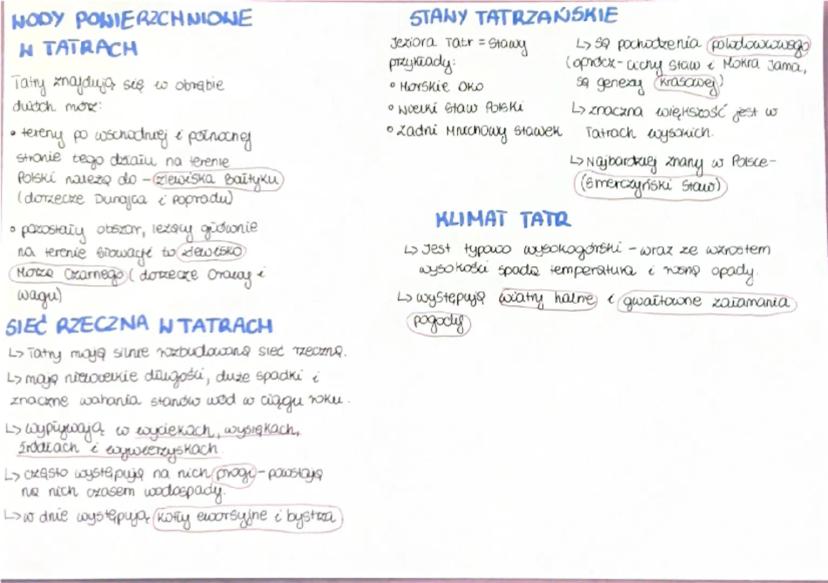 WODY POWIERZCHNIOWE
W TATRACH
Tatry znajdują się w obrębie
dwóch mórz:
• tereny po wschodniej i północnej
stronie tego działu na terenie
Polski należą do - zlewiska Bałtyku
(dorzecze Dunajca i Popradu)
• pozostały obszar, leżący głównie
na terenie Słowacji to zlewisko
Morza Czarnego (dorzecze Orawy i
Wagu)
SIEĆ RZECZNA W TATRACH
↳ Tatry mają silnie rozbudowaną sieć rzeczną.
↳ mają niewielkie długości, duże spadki i
znaczne wahania stanów wód w ciągu roku.
↳ wypływają w wyciekach, wysiękach,
źródłach i wywierzyskach
↳ często występują na nich progi - powstają
na nich czasem wodospady.
↳ w dnie występują kotły eworsyjne i bystrza
STAWY TATRZAŃSKIE
Jeziora Tatr = Stawy
przykłady:
• Morskie Oko
• Wielki Staw Polski
• Zadni Mnichowy Stawek
↳ są pochodzenia polodowcowego
(oprócz - Cichy Staw i Mokra Jama,
są genezy krasowej)
↳ znaczna większość jest w
Tatrach wysokich.
↳ Najbardziej znany w Polsce -
(Smerczyński Staw)
KLIMAT TATR
↳ Jest typowo wysokogórski - wraz ze wzrostem
wysokości spada temperatura i rosną opady.
↳ występują wiatry halne i gwałtowne załamania
pogody